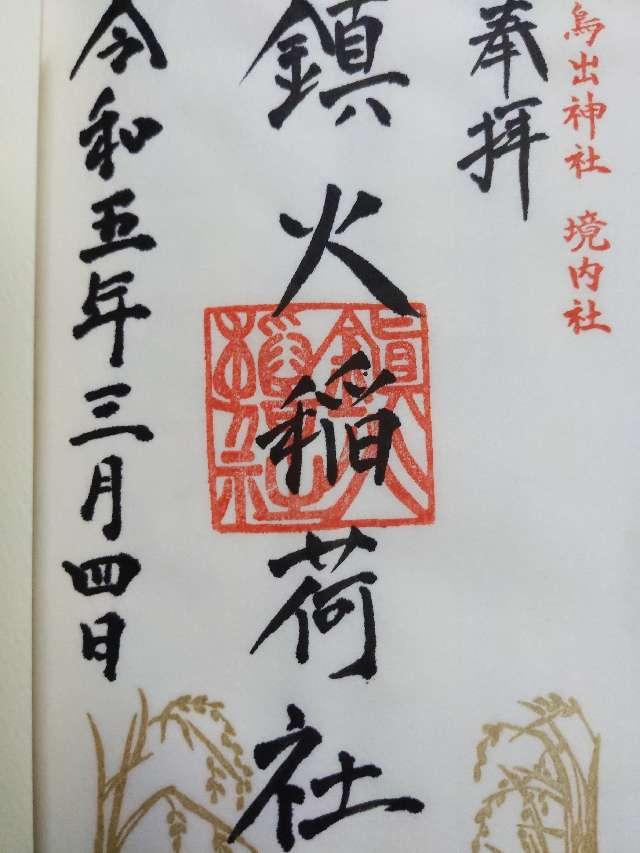 鳥出神社 境内社
奉拝
鎮火稲荷社
令和五年三月四日